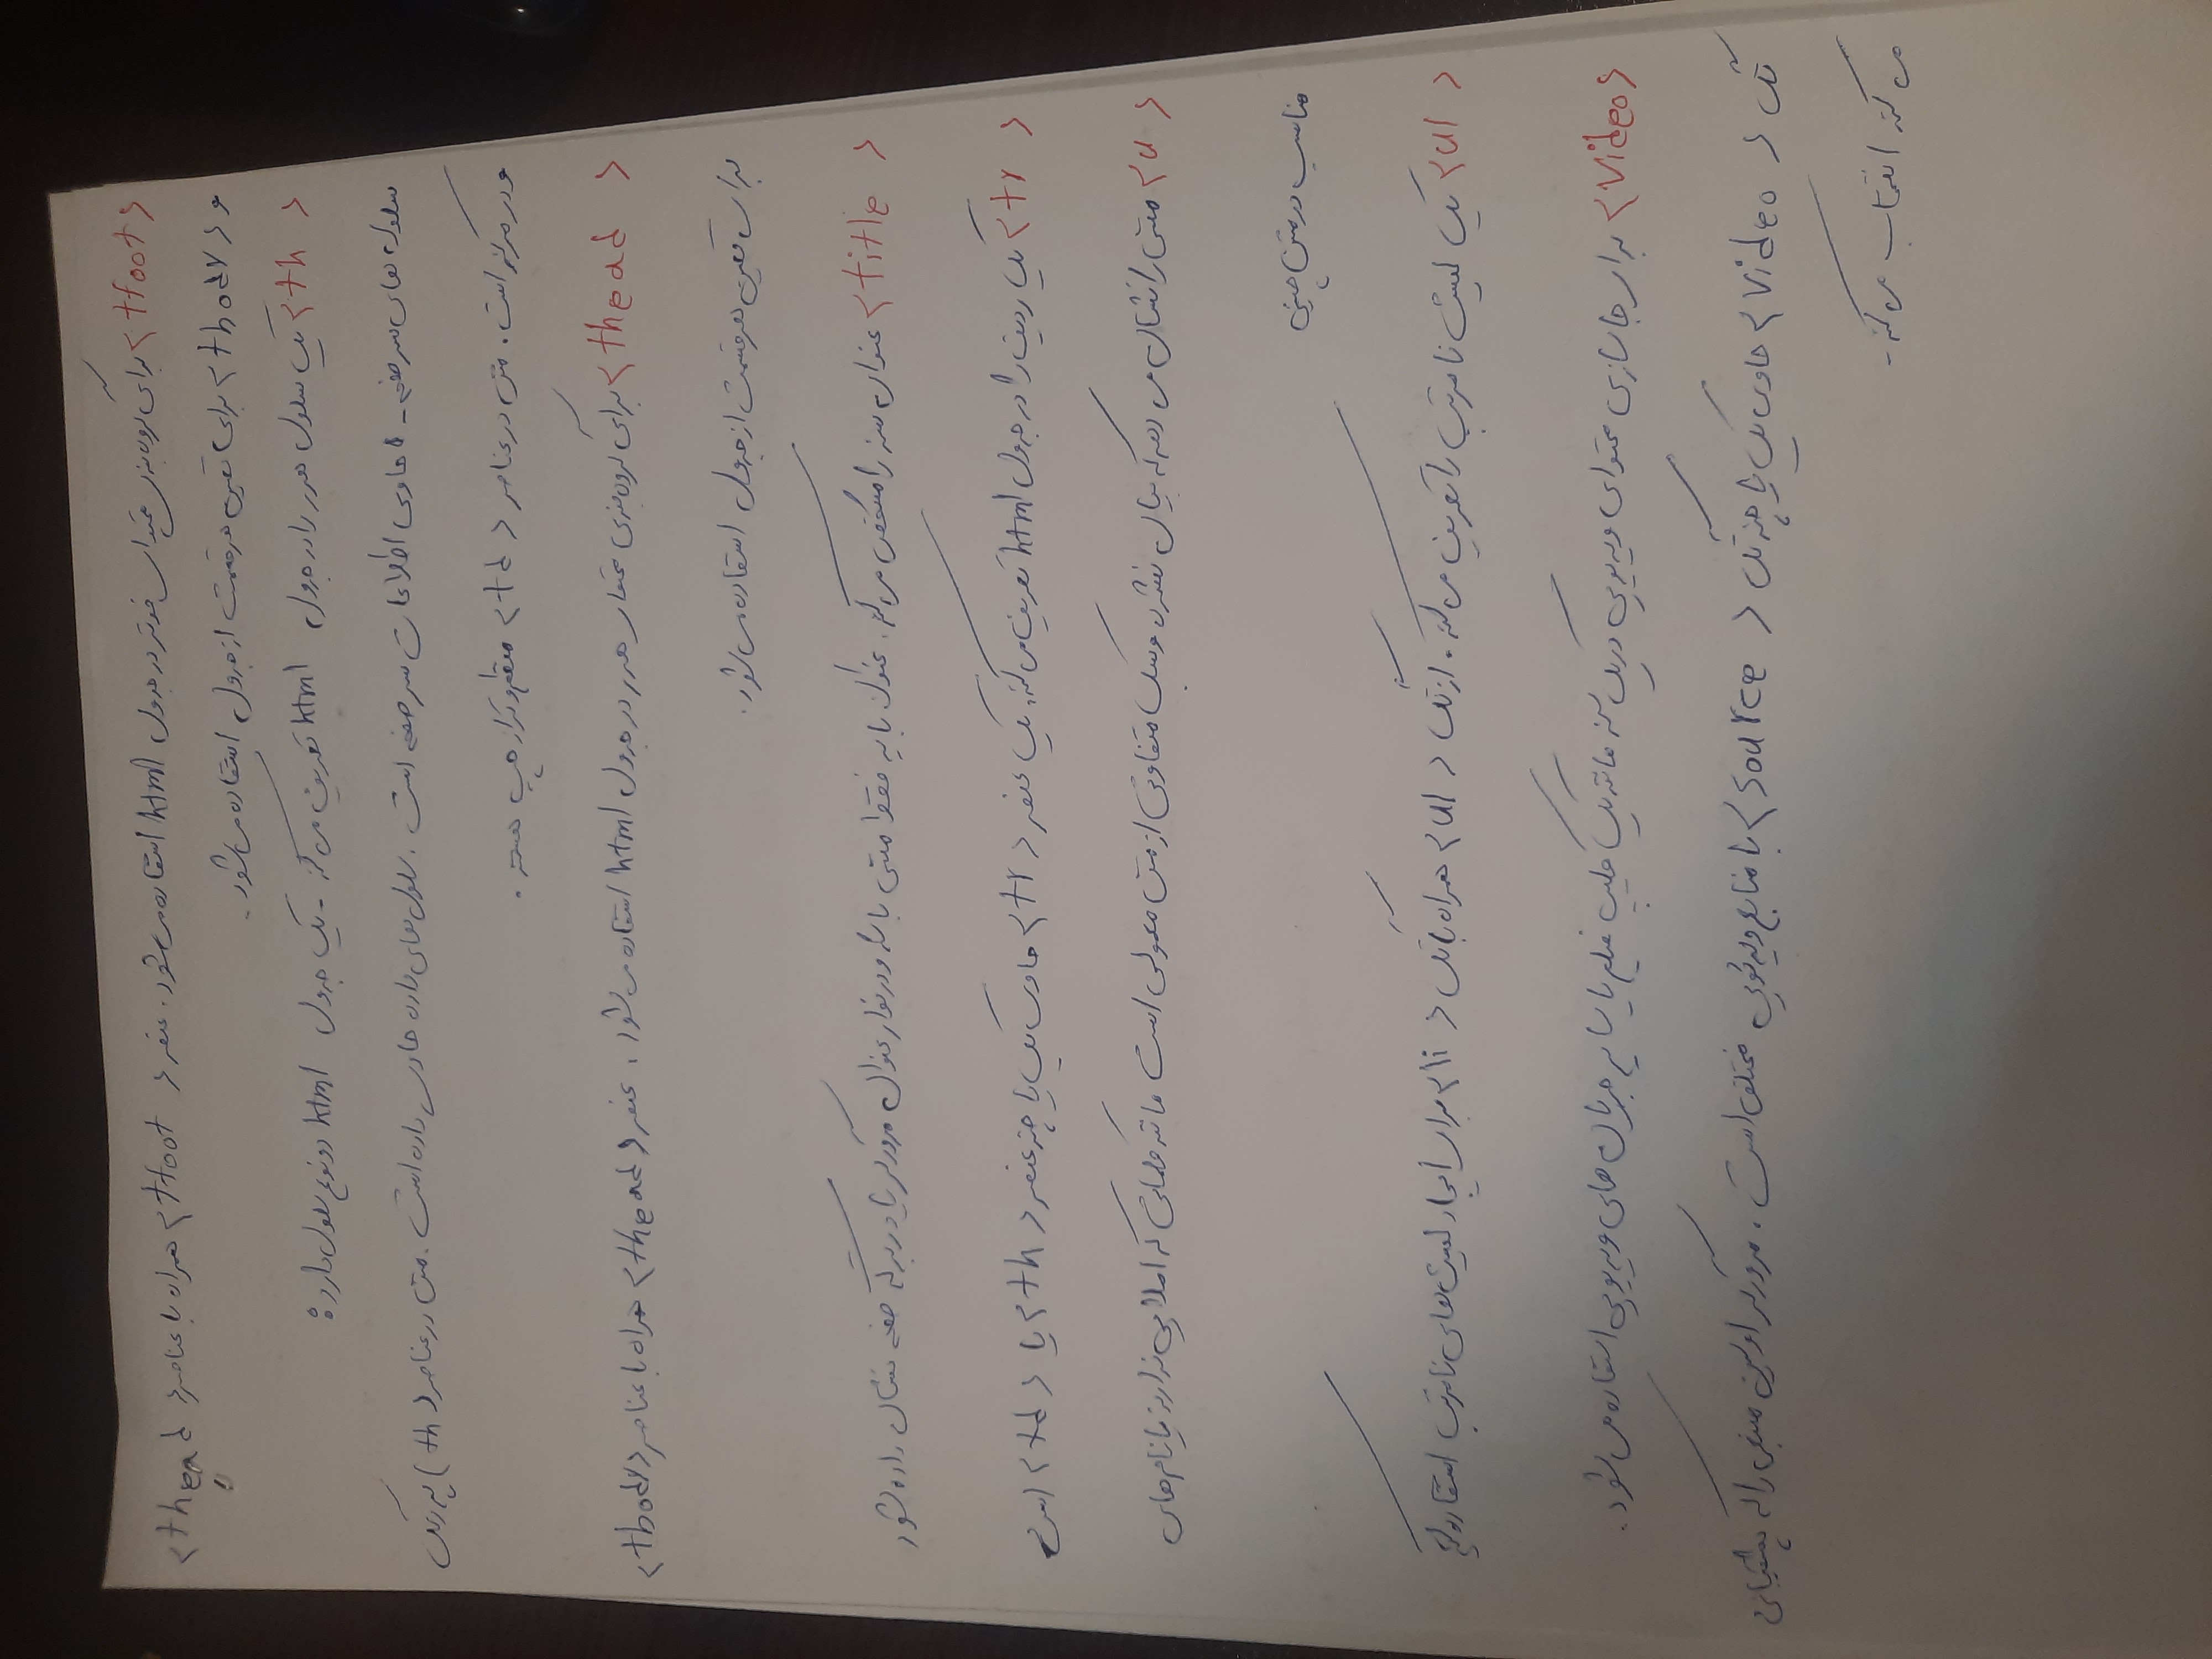 <tfoot> برای گروه بندی محتوای فوتر در جدول html استفاده می شود. عنصر <tfoot> همراه با عناصر <thead>
و <tbody> برای تعیین هر قسمت از جدول استفاده می شود.
<th> یک سلول هدر را در جدول html تعریف می کند - یک جدول html دو نوع سلول دارد:
سلول های سر صفحه - حاوی اطلاعات سر صفحه است. سلول های داده حاوی داده است. متن در عناصر <th> پررنگ
و در مرکز است. متن در عناصر <td> منظم و تراز چپ هستند.
<thead> برای گروه بندی محتوای هدر در جدول html استفاده می شود. عنصر <thead> همراه با عناصر <tbody>
برای تعیین هر قسمت از جدول استفاده می شود.
<title> عنوان سند را مشخص می کند. عنوان باید فقط متنی باشد و در نوار عنوان مرورگر یا در برگه صفحه نشان داده شود
<tr> یک ردیف را در جدول html تعریف می کند. یک عنصر <tr> حاوی یک یا چند عنصر <th> یا <td> است
<u> متنی را نشان می دهد که بیان نشده و سبک متفاوتی از متن معمولی است مانند کلماتی که املایی ندارند یا نام های
مناسب در متن چینی
<ul> یک لیست نا مرتب را تعریف می کند. از تگ <ul> همراه با تگ <li> برای ایجاد لیست های نا مرتب استفاده کنید
<video> برای جاسازی محتوای ویدیویی در یک سند مانند یک کلیپ فیلم یا سایر جریان های ویدیویی استفاده می شود.
تگ <video> حاوی یک یا چند تگ <source> با منابع ویدئویی مختلف است. مرورگر اولین منبعی را که پشتیبانی
می کند انتخاب می کند -